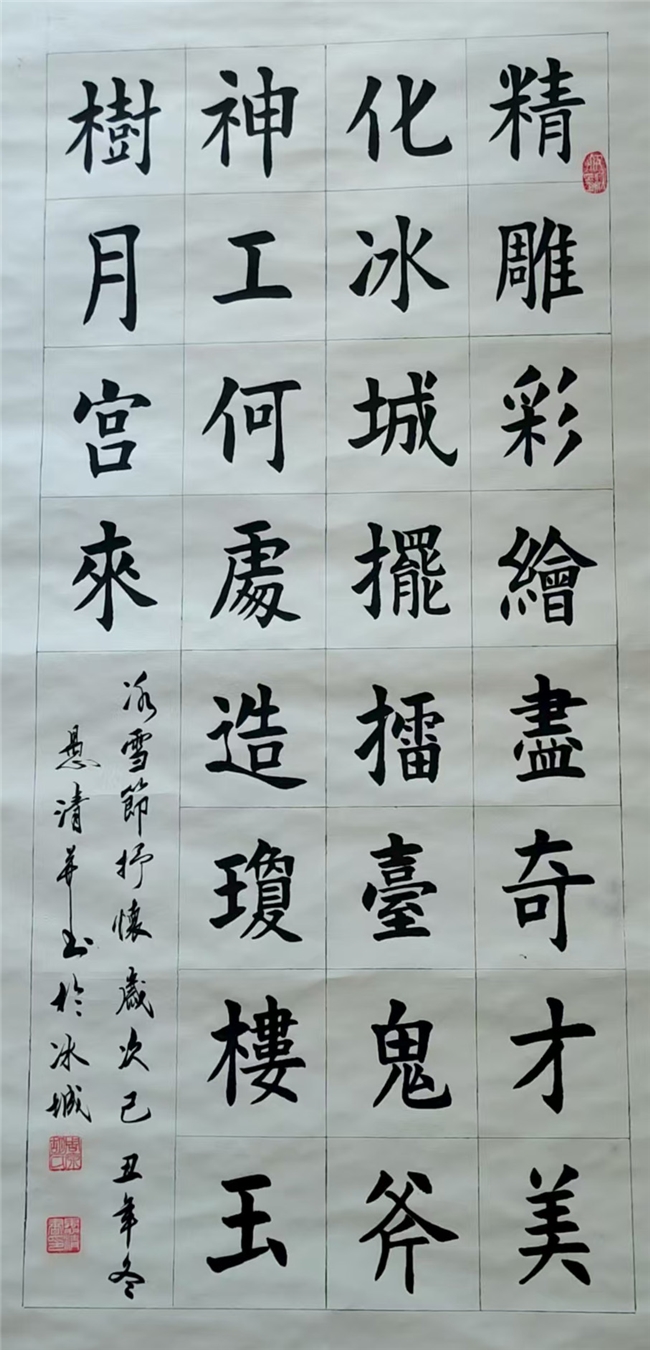 精雕彩繪盡奇才美
化冰城擺擂臺鬼斧
神工何處造瓊樓玉
樹月宮來
冰雪節抒懷歲次己丑年冬
清并书於冰城